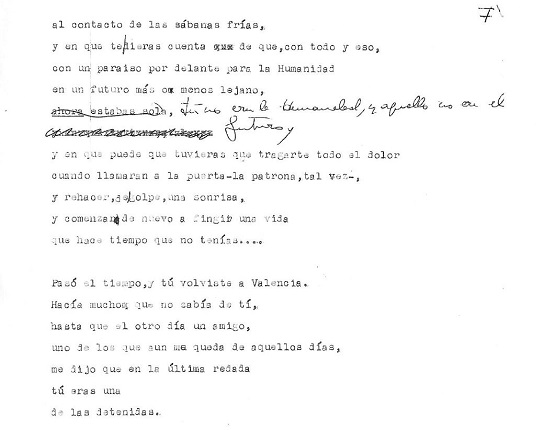 7
al contacto de las sábanas frías,
y en que te dieras cuenta de que,con todo y eso,
con un paraiso por delante para la Humanidad
en un futuro más o menos lejano,
ahora estabas sola, tú no eras la Humanidad, y aquello no era el
futuro y
y en que puede que tuvieras que tragarte todo el dolor
cuando llamaran a la puerta-la patrona,tal vez-,
y rehacer,de golpe,una sonrisa,
y comenzar de nuevo a fingir una vida
que hace tiempo que no tenías....
Pasó el tiempo,y tú volviste a Valencia.
Hacía mucho que no sabía de tí,
hasta que el otro día un amigo,
uno de los que aun me queda de aquellos días,
me dijo que en la última redada
tú eras una
de las detenidas.